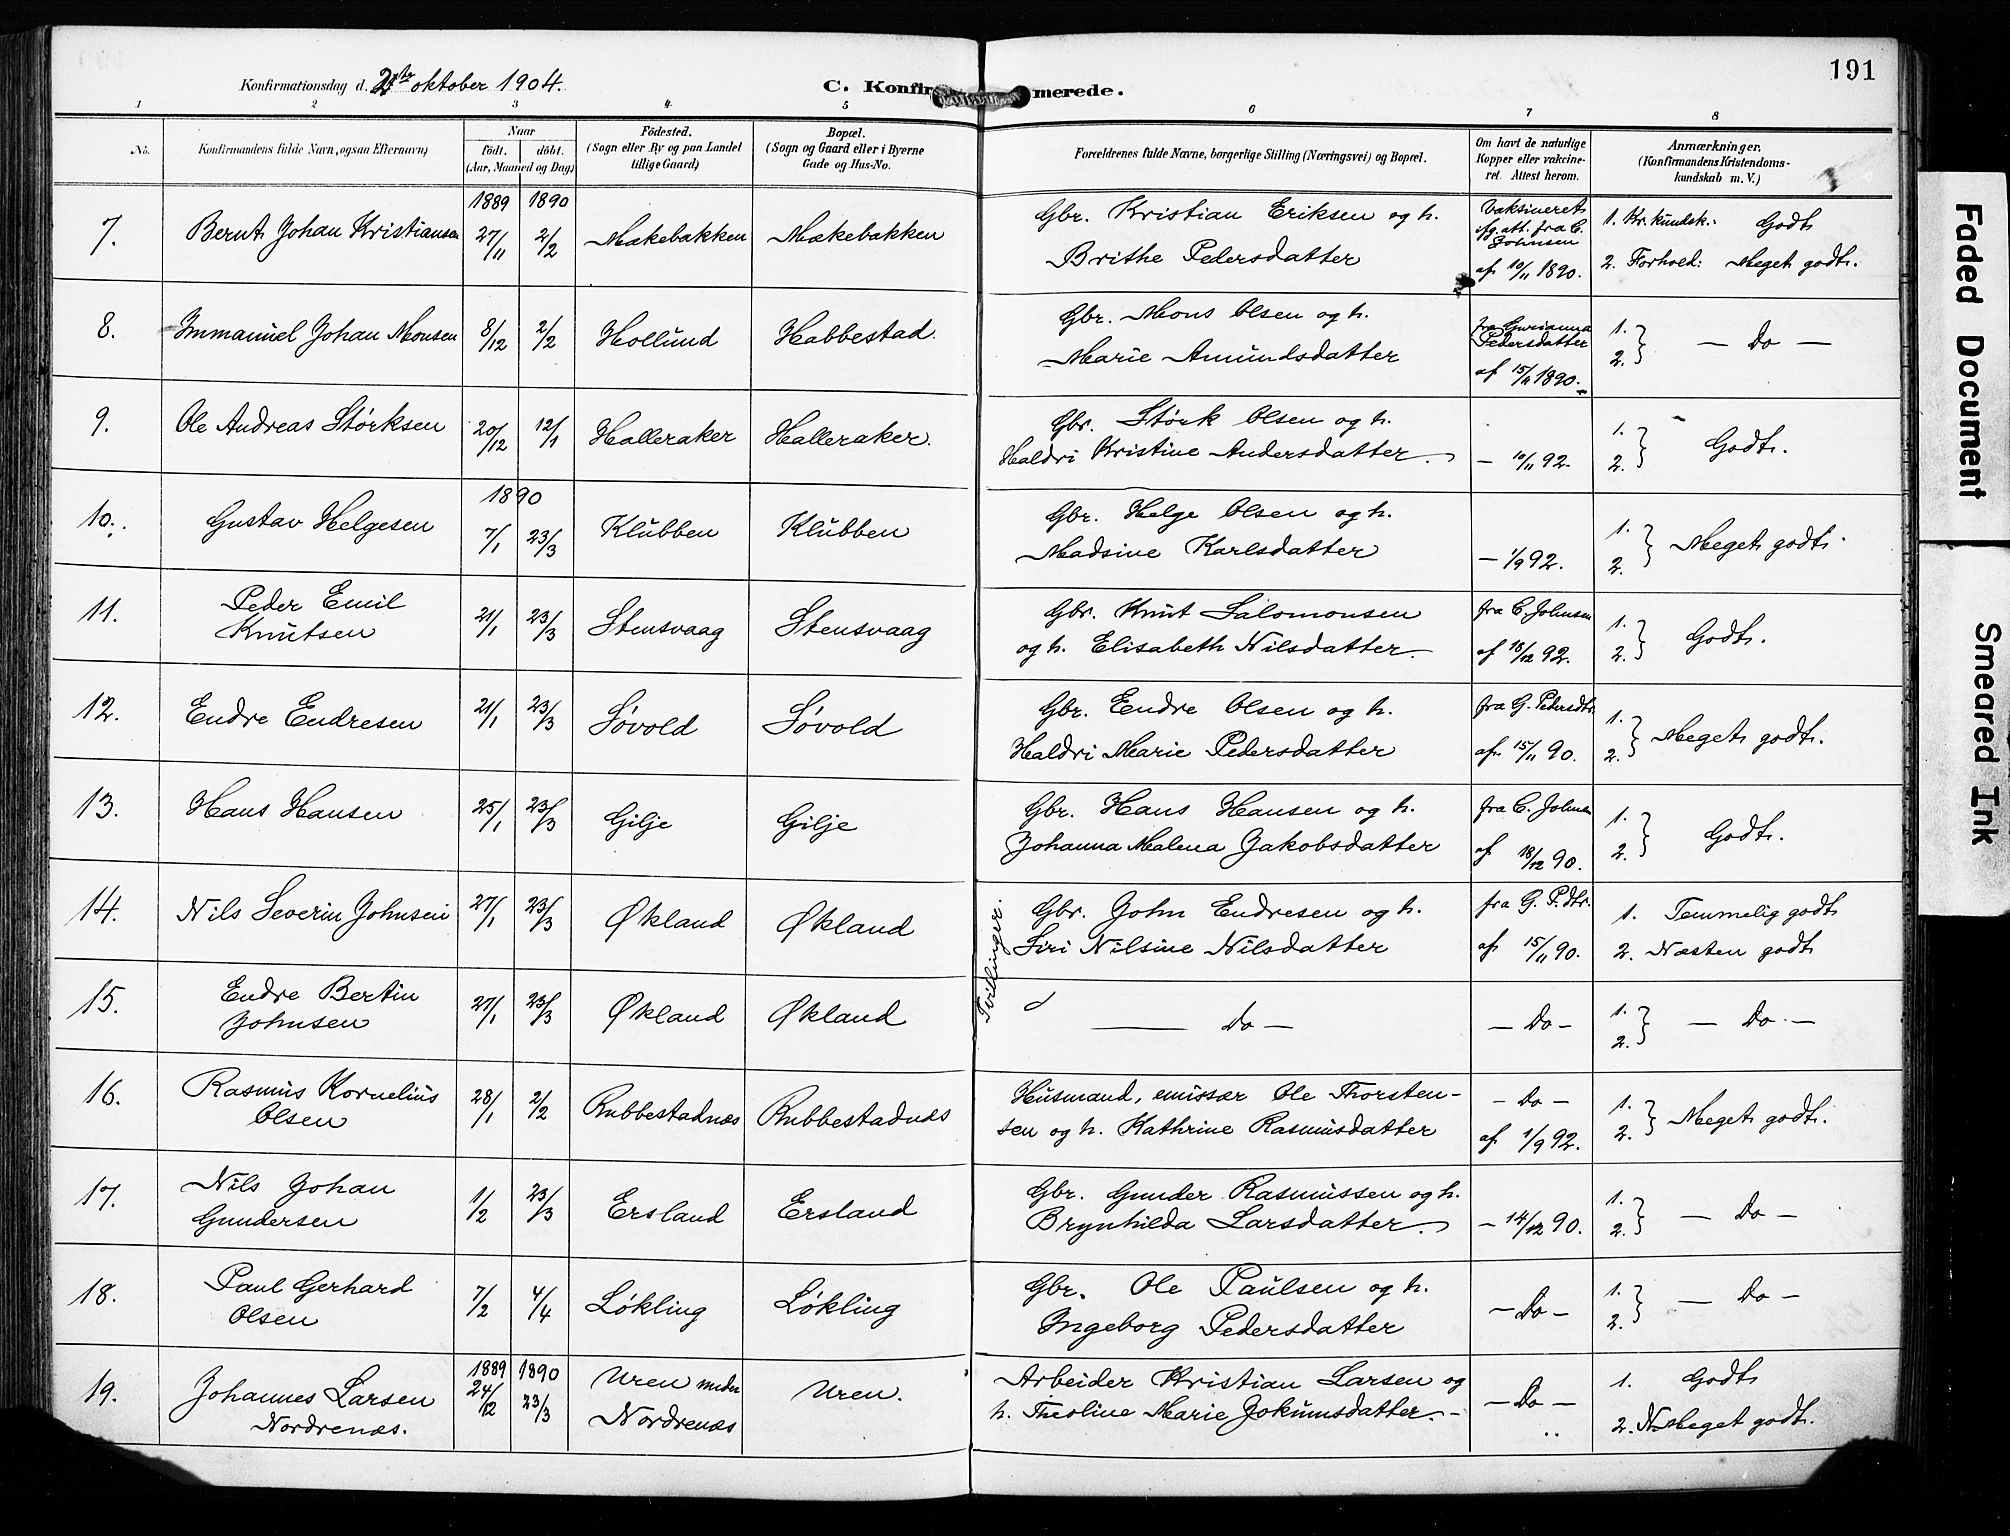 191
Konfirmationsdag d. oktober 1904.
C. Konfir merede.
1 2 3 4 5 6 7 8
No.
Konfirmandens fulde Navn, ogsaa Efternavn)
Naar
födt. döbt.
(Aar, Maaned og Dag)
Födested.
(Sogn eller By og paa Landet
tillige Gaard)
Bopæl.
(Sogn og Gaard eller i Byerne
Gade og Hus-No.
Forældrenes fulde Navne, borgerlige Stilling (Næringsvei) og Bopæl.
Om havt de naturlige
Kopper eller vakcine-
ret. Attest herom.
Anmærkninger.
(Konfirmandens Kristendoms-
kundskab m. V.)
7. Bernt Johan Kristiansen 1889 27/11 1890 2/2 Mækebakken Mækebakken
Gbr. Kristian Eriksen og h.
Brithe Pedersdatter
Vaksineret
ifg. att. fra C.
Johnsen
af 10/11 1890.
1. Kr. kundsk.: Godt
2. Forhold: Meget godt.
8. Immanuel Johan Monsen 8/12 2/2 Hollund Habbestad.
Gbr. Mons Olsen og h.
Marie Amundsdatter
fra Gurianna
Pedersdatter
af 15/11 1890.
1. 2. } — Do —
9. Ole Andreas Størksen 20/12 12/1 Halleraker Halleraker.
Gbr. Størk Olsen og h.
Haldri Kristine Andersdatter.
— 10/11 92.
1. 2. } Godt.
10. Gustav Helgesen 1890 7/1 23/3 Klubben Klubben
Gbr. Helge Olsen og h.
Madsine Karlsdatter
— 1/9 92.
1. 2. } Meget godt.
11. Peder Emil
Knutsen 21/1 23/3 Stensvaag Stensvaag
Gbr. Knut Salomonsen
og h. Elisabeth Nilsdatter.
fra C. Johnsen
af 18/12 92.
1. 2. } Godt.
12. Endre Endresen 21/1 23/3 Søvold Søvold
Gbr. Endre Olsen og h.
Haldri Marie Pedersdatter
fra G. Pedersdtr.
af 15/11 90.
1. 2. } Meget godt.
13. Hans Hansen 25/1 23/3 Gilje Gilje
Gbr. Hans Hansen og h.
Johanna Malena Jakobsdatter
fra C. Johnsen
af 18/12 90.
1. 2. } Godt.
14. Nils Severin Johnsen 27/1 23/3 Økland Økland
Tvillinger.
Gbr. John Endresen og h.
Siri Nilsine Nilsdatter
fra G. P.dtr.
af 15/11 90.
1. Temmelig godt
2. Næsten godt
15. Endre Bertin
Johnsen 27/1 23/3 Økland Økland
— Do —
— Do —
1. 2. } — Do. —
16. Rasmus Kornelius
Olsen 28/1 2/2 Rubbestadnæs Rubbestadnæs
Husmand, emissær Ole Thorsten-
sen og h. Kathrine Rasmusdatter
— Do —
af 1/9 92.
1. 2. } Meget godt.
17. Nils Johan
Gundersen 1/2 23/3 Ersland Ersland
Gbr. Gunder Rasmussen og h.
Brynhilda Larsdatter.
— 14/12 90.
1. 2. } — Do —
18. Paul Gerhard
Olsen 7/2 4/4 Løkling Løkling
Gbr. Ole Paulsen og h.
Ingeborg Pedersdatter
— Do —
1. 2. } — Do —
19. Johannes Larsen
Nordrenæs. 1889 24/12 1890 23/3 Uren under
Nordrenæs Uren.
Arbeider Kristian Larsen og
h. Theoline Marie Jokumsdatter. —
— Do —
1. Godt
2. N. Meget godt.
Faded Document
Smeared Ink